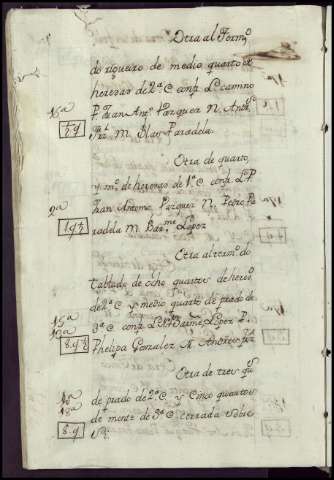 Otra al Term.o
de riqueiro de medio quarto de
heredad de 2.a C. conf. L. camino
15a
P. Juan Ant.o Vazquez N. Andr.s
59
M. Blas Paradela.
Otra de quarto
y m.o de heredad de 1.a C. conf. L. P
2a
Juan Antonio Vazquez N. Pedro Pa
193
radela M. Bar.me Lopez
Otra al term.o do
Tablado de ocho quartos de hered.
de 2.a C. y medio quarto de prado de
15a
3.a C. conf. L. Barme Lopez P.
Phelipa Gonzalez N. Andres
Otra de tres qu
de prado de 2.a C. y Cinco quartos
18a
de mont.e de 3.a C. cerrada sobre
89
si.